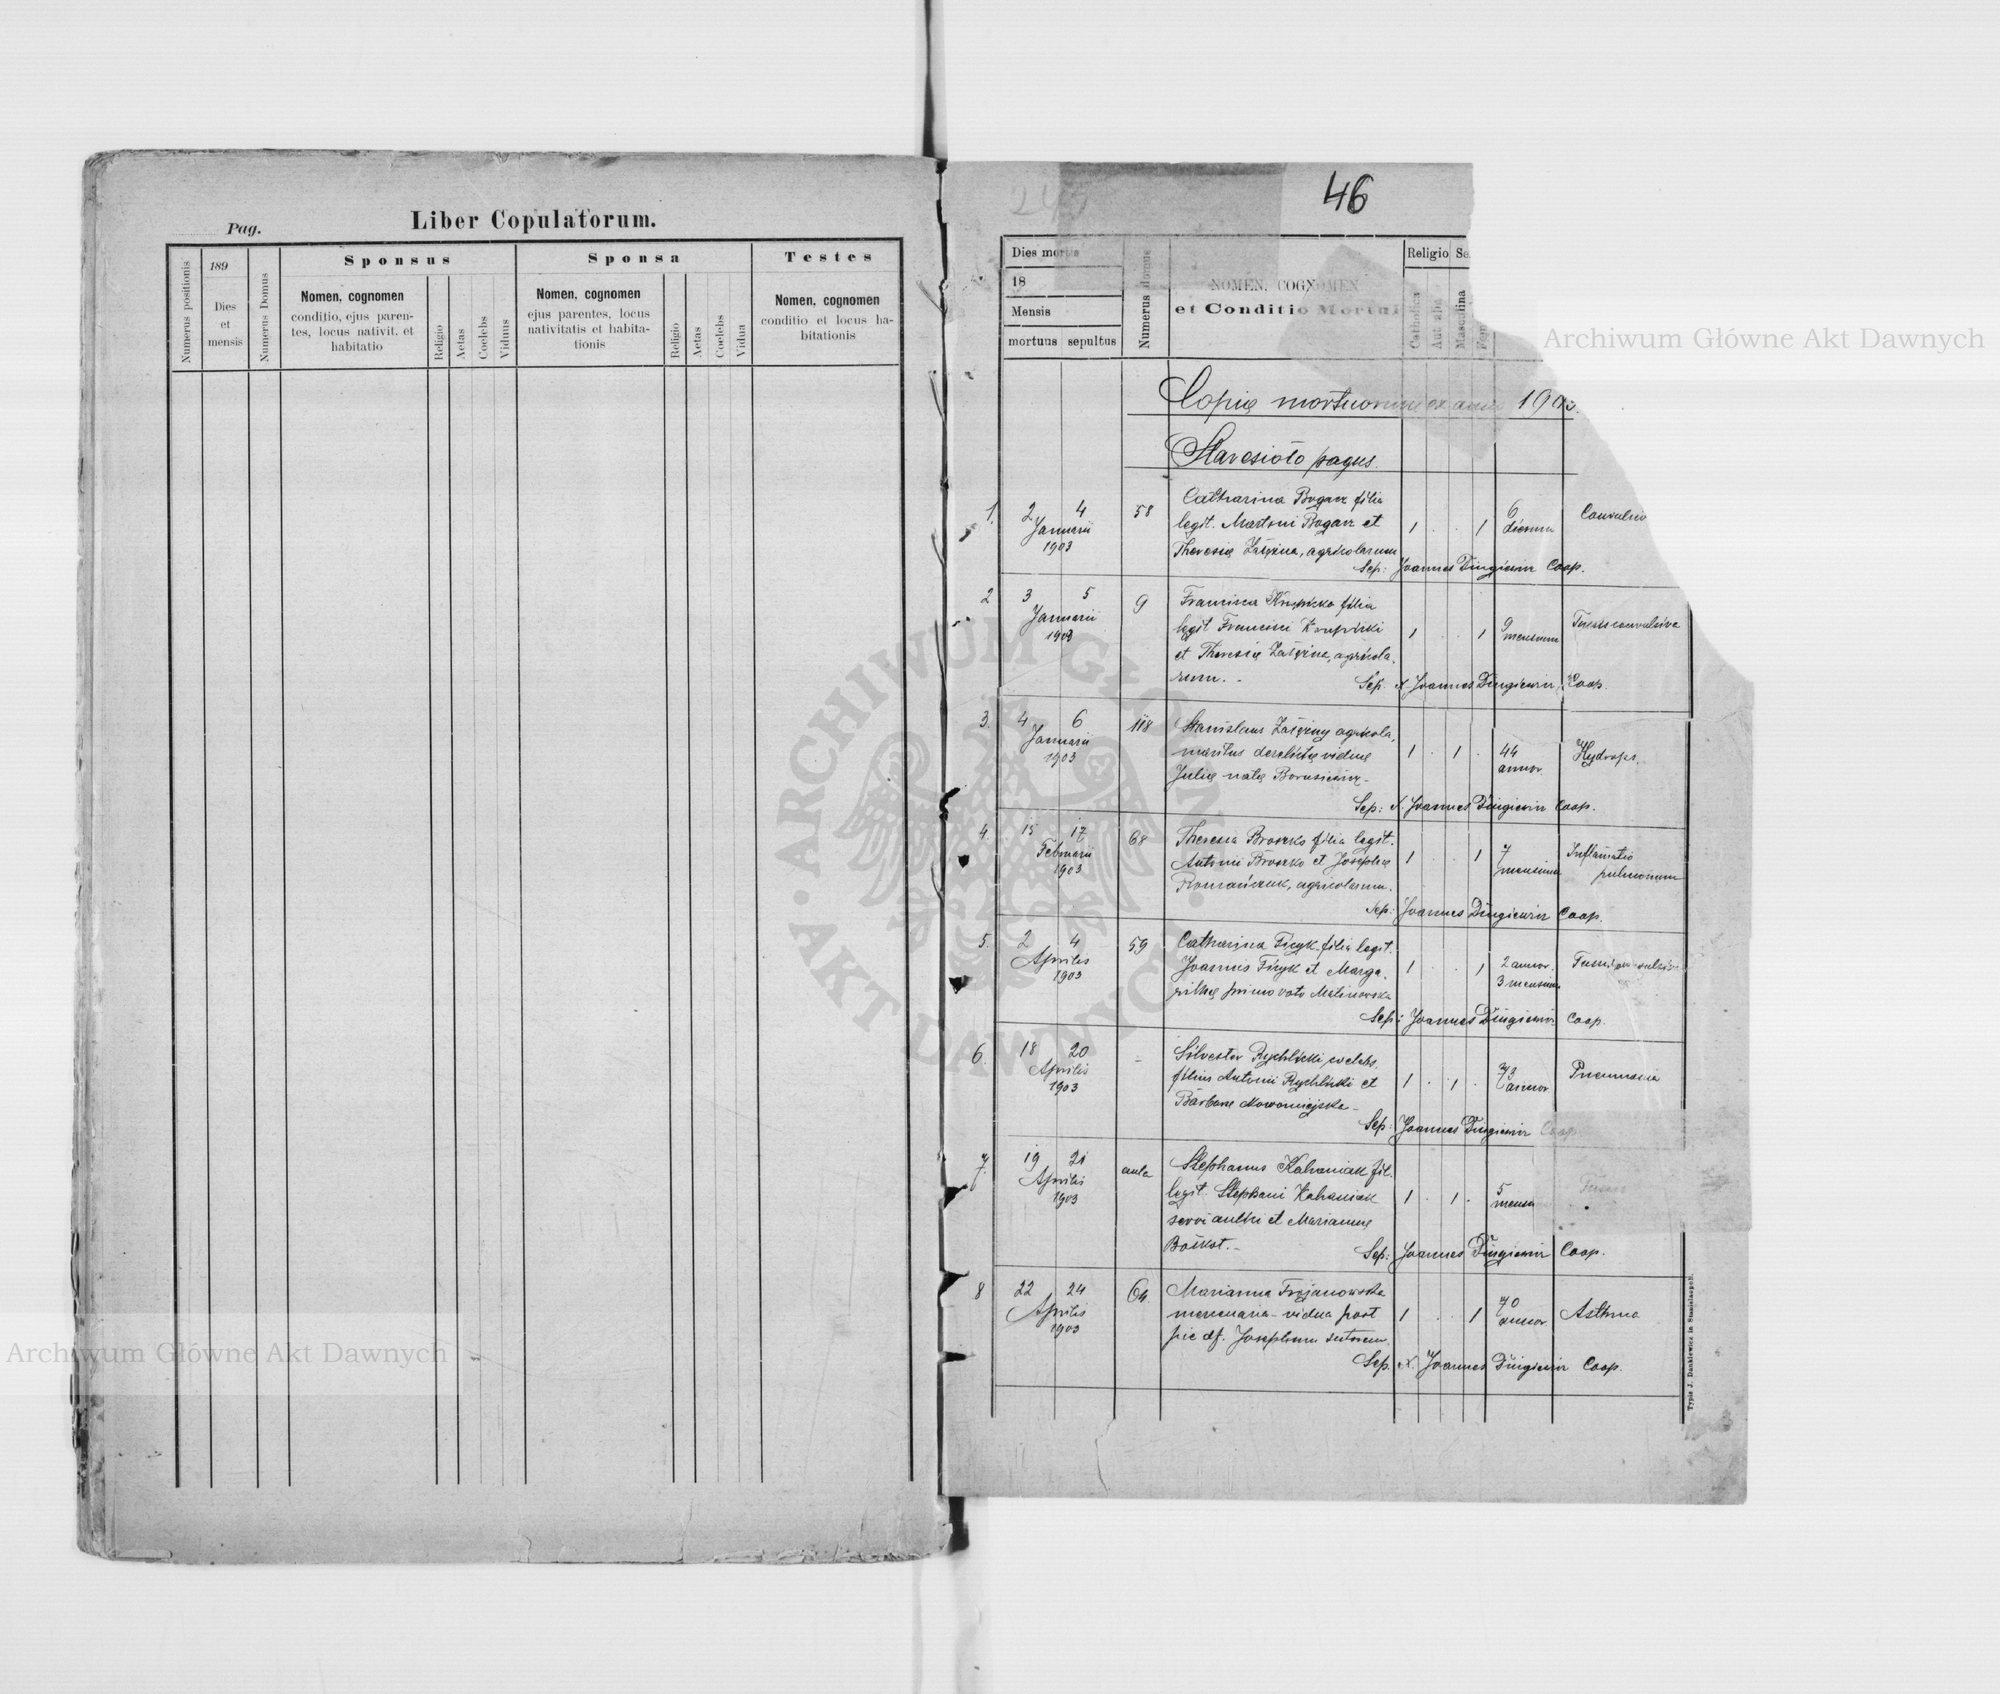 Pag.
Liber Copulatorum.
Numerus positionis
189
Dies
et
mensis
Numerus Domus
Sponsus
Nomen, cognomen
conditio, ejus paren-
tes, locus nativit. et
habitatio
Religio
Aetas
Coelebs
Viduus
Sponsa
Nomen, cognomen
ejus parentes, locus
nativitatis et habita-
tionis
Religio
Aetas
Coelebs
Vidua
Testes
Nomen, cognomen
conditio et locus ha-
bitationis
46
Dies mortis
18
Mensis
mortuus sepultus
Numerus domus
NOMEN, COGNOMEN
et Conditio Mortui
Religio
Catholica
Aut alia
Se
Masculina
Fem
Copiae mortuorum ex anno 1903.
Staresioło pagus
1. 2 4 58 Catharina Bogacz filia
Januarii legit. Martini Bogacz et 1 . . 1 6 dierum
1903 Theresiae Zaleźna, agricolarum
Sep: Joannes Dziugiewicz Coop.
2 3 5 9 Francisca Krupicka filia
Januarii legit Francisci Krupicki 1 . . 1 9 mensium Tussis convulsiva
1903 et Theresiae Zaleźna, agricola-
rum.
Sep. Joannes Dziugiewicz, Coop.
3. 4 6 118 Stanislaus agricola,
Januarii maritus derelictae viduae 1 . 1 . 44 annor. Hydrops.
1903 Juliae natae Borusiewicz
Sep: Joannes Dziugiewicz Coop.
4. 15 17 68 Theresia Broszko filia legit.
Februarii Antonii Broszko et Josephae 1 . . 1 7 mensium Inflamatio
1903 Romańczuk, agricolarum. pulmonum
Sep: Joannes Dziugiewicz Coop.
5. 2 4 59 Catharina Ficyk filia legit.
Aprilis Joannis Ficyk et Marga- 1 . . 1 2 annor.
1903 rithae primo voto Malinowska 3 mensium
Sep: Joannes Dziugiewicz Coop.
6. 18 20 - Silvester Rychlicki coelebs
Aprilis filius Antonii Rychlicki et 1 . 1 . 73 annor Pneumonia
1903 Barbarae Nowomiejska
Sep: Joannes Dziugiewicz Coop
7. 19 21 aula Stephanus Kahaniak fil.
Aprilis legit. Stephani Kahaniak 1 . 1 . 5
1903 servi aulici et Mariannae
Sep: Joannes Dziugiewicz Coop.
8 22 24 64. Marianna Trojanowska
Aprilis mercenaria - vidua post 1 . . 1 70 annor Asthma
1903 pie df. Josephum sutorem.
Sep. Joannes Dziugiewicz Coop.
Typis J. Dankiewicz in Stanislaopoli.
ARCHIWUM GŁÓWNE · AKT DAWNYCH ·
Archiwum Główne Akt Dawnych
Archiwum Główne Akt Dawnych